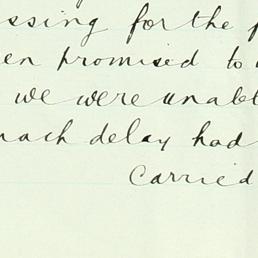 ssing for the
en promised to
we were unabl
much delay had
carried